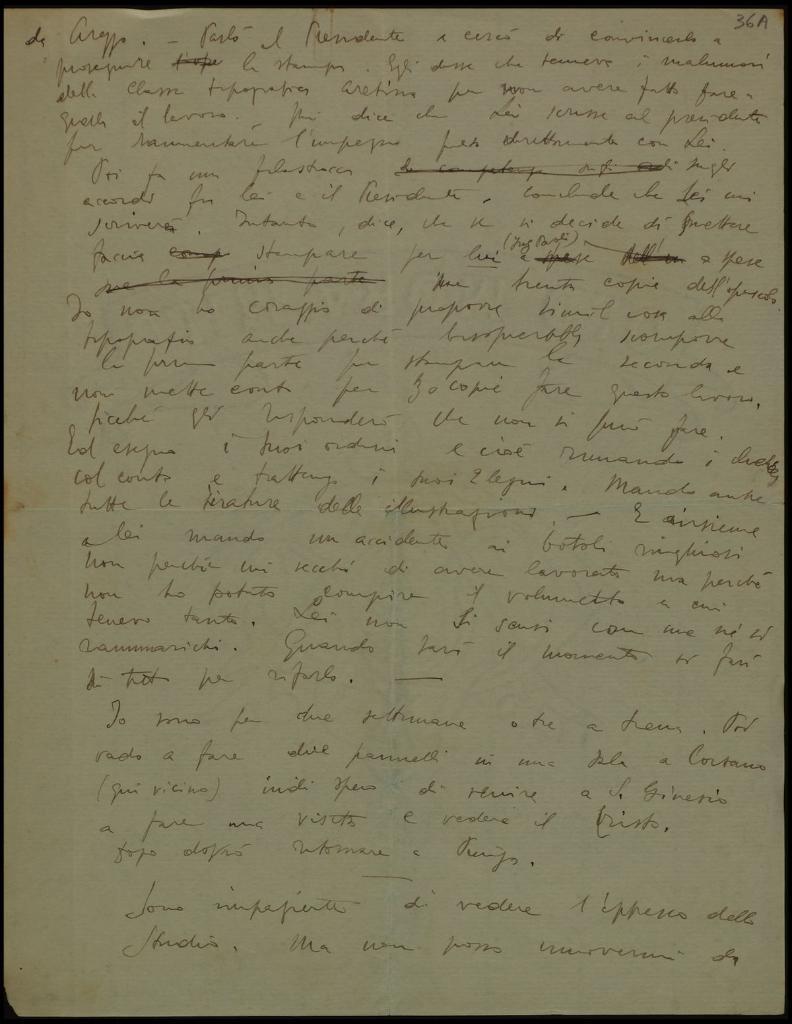 36A
da Arezzo. — Parlò il Presidente e cercò di convincerlo a
proseguire la stampa. Egli disse che temeva i malumori
della classe tipografica aretina per non avere fatto fare a
quella il lavoro. Mi dice che Lei scrisse al presidente
per rammentare l'impegno preso direttamente con Lei.
Poi fa una filastrocca le competenze sugli sugli
accordi fra lei e il Presidente, conclude che Lei mi
scriverà. Intanto, dice, che se si decide di smettere
faccia stampare per lui a spese
(Ing Paoli)
se la prima parte una trenta copie dell'opuscolo.
Io non ho coraggio di proporre simil cosa alla
tipografia anche perché bisognerebbe scomporre
la prima parte per stampare la seconda e
non mette conto per 30 copie fare questo lavoro.
Sicché gli risponderò che non si può fare.
Ed eseguo i suoi ordini e cioè rimando i clichés
col conto e trattengo i suoi 2 legni. Mando anche
tutte le tirature delle illustrazioni. — E insieme
a lei mando un accidente ai botoli ringhiosi
non perché mi secchi di avere lavorato ma perché
non ho potuto compire il volumetto a cui
tenevo tanto. Lei non si scusi con me né si
rammarichi. Quando sarà il momento si farà
di tutto per rifarlo. —
Io sono per due settimane o tre a Poi
vado a fare due pannelli in una sala a Corsano
(qui vicino) indi spero di venire a S. Ginesio
a fare una visita e vedere il Cristo.
Dopo dovrò ritornare a
Sono impaziente di vedere l'affresco dello
Studio. Ma non posso muovermi da